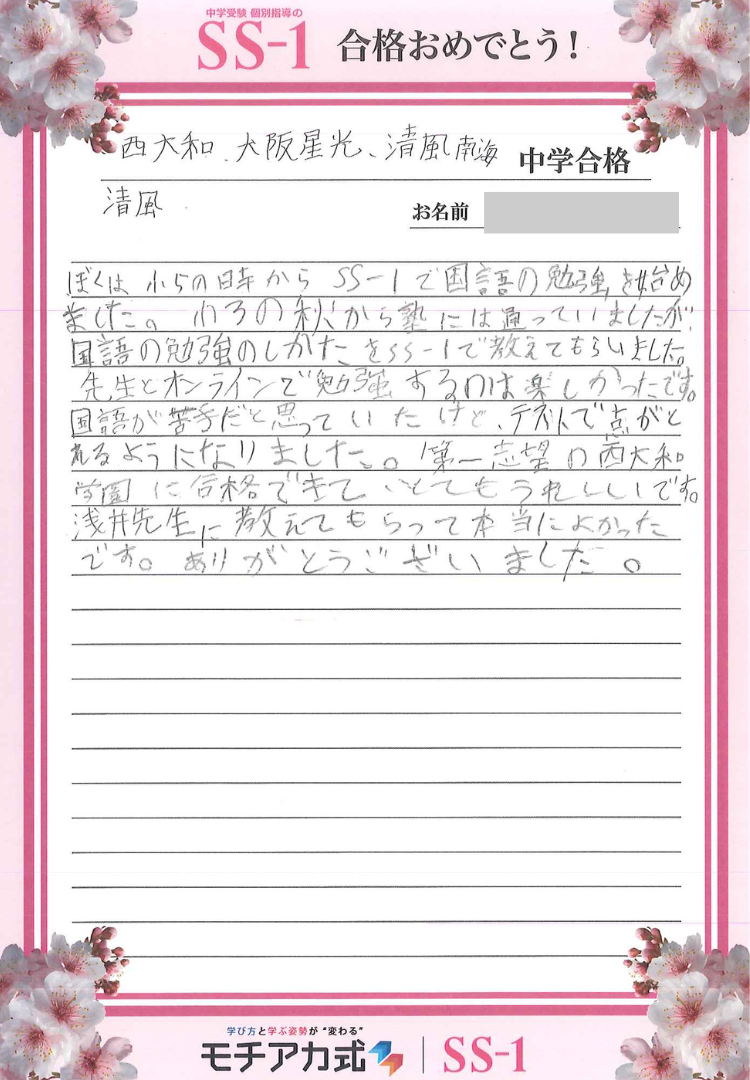 中学受験 個別指導の
SS-1 合格おめでとう!
西大和、大阪星光、清風南海 中学合格
清風
お名前
ぼくは小5の時からSS-1で国語の勉強を始め
ました。小3の秋から塾には通っていましたが、
国語の勉強のしかたをSS-1で教えてもらいました。
先生とオンラインで勉強するのは楽しかったです。
国語が苦手だと思っていたけど、テストで点がと
れるようになりました。第一志望の西大和
学園に合格できてとてもうれしいです。
浅井先生に教えてもらって本当によかった
です。ありがとうございました。
学び方と学ぶ姿勢が“変わる”
モチアカ式 | SS-1